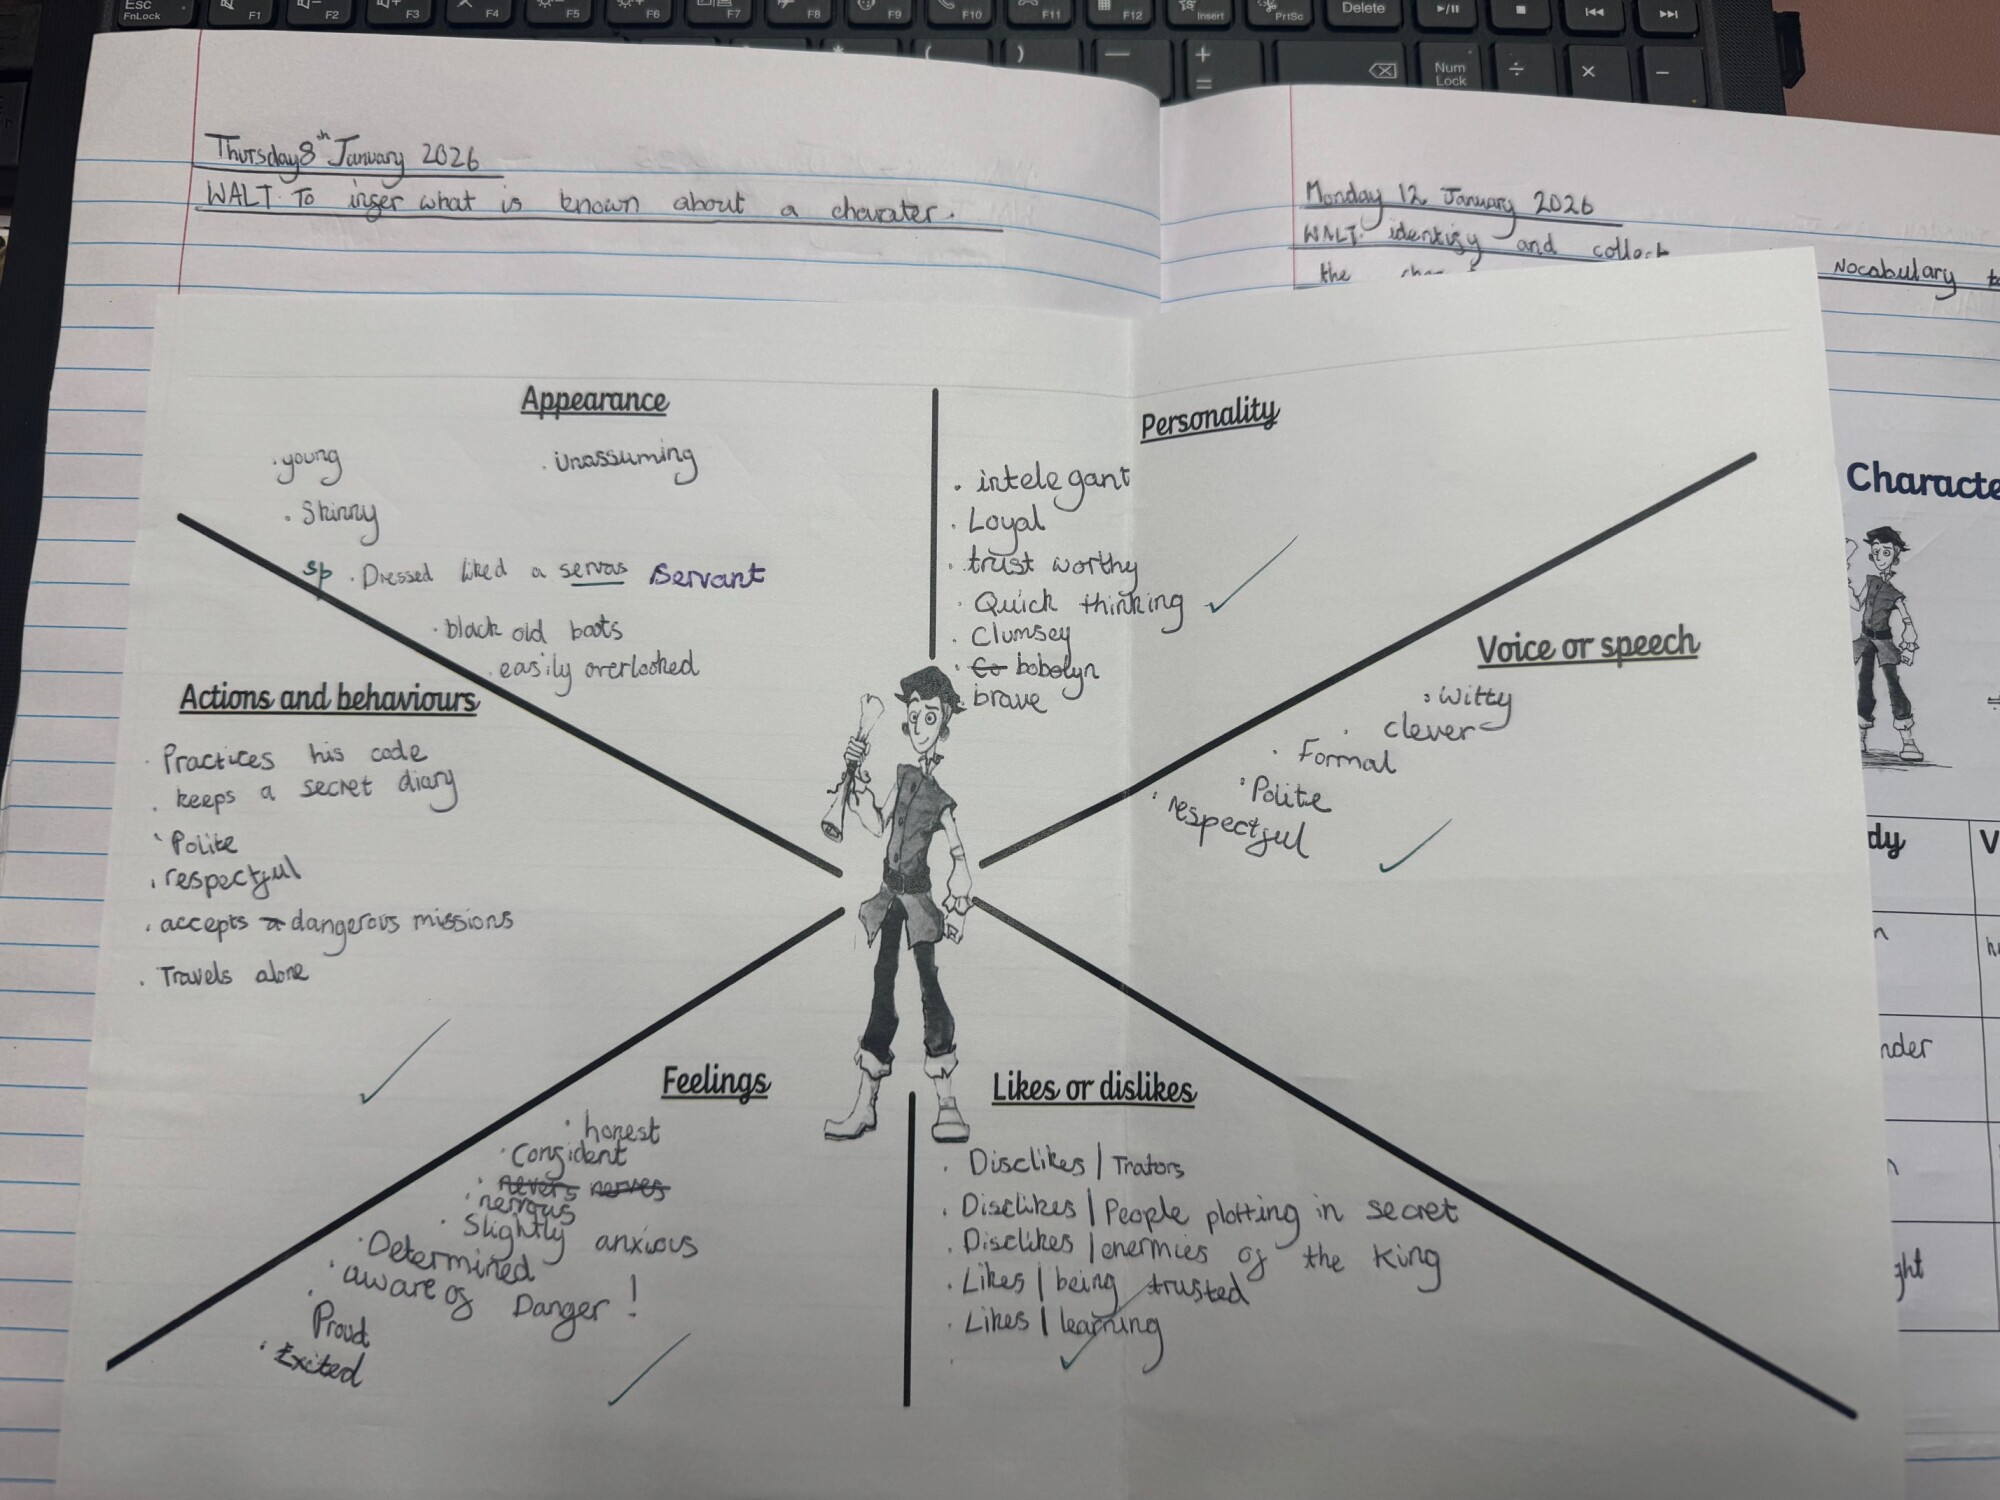 Esc
FnLock
F1
F2
F3
F4
F5
F6
F7
F8
F9
F10
F11
F12
Insert
PrtSc
Delete
(
)
—
+
=
Num
Lock
÷
×
−
Thursday 8th January 2026
WALT. To inger what is known about a charater.
Monday 12 January 2026
WALT. identigy and collect
the
Vocabulary to
Appearance
. young
. Unassuming
. Skinny
sp . Dressed liked a servas Servant
. black old boots
. easily overlooked
Personality
. intelegant
. Loyal
. trust worthy
. Quick thinking
. Clumsey
. Co bobolyn
. brave
Voice or speech
. Witty
. clever
. Formal
. Polite
. respectgul
Actions and behaviours
. Practices his code
. keeps a secret diary
. Polite
. respectgul
. accepts a dangerous missions
. Travels alone
Feelings
. honest
. Congident
. nevers nerves
. nervous
. Slightly anxious
. Determined
. aware og Danger !
. Proud
. Exited
Likes or dislikes
. Disclikes | Trators
. Disclikes | People plotting in secret
. Disclikes | enermies og the King
. Likes | being trusted
. Likes | learning
.
Characte
dy
V
nder
ght